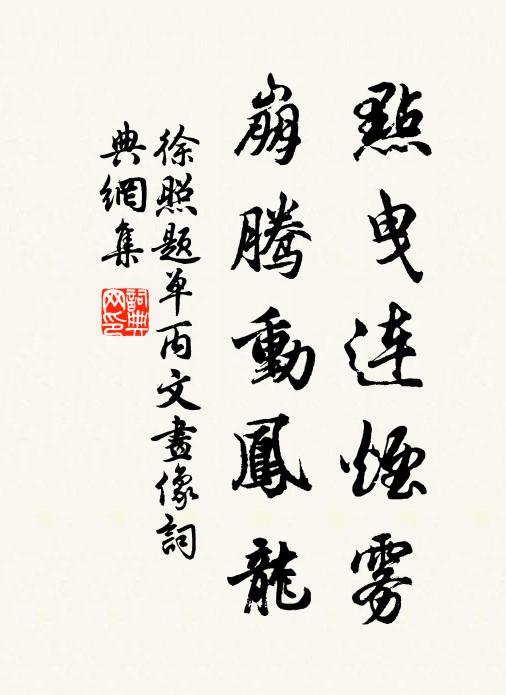 點曳连煙雾
崩騰動鳳龍
徐照题单丙文畫像詞
典網集
詞典
网印